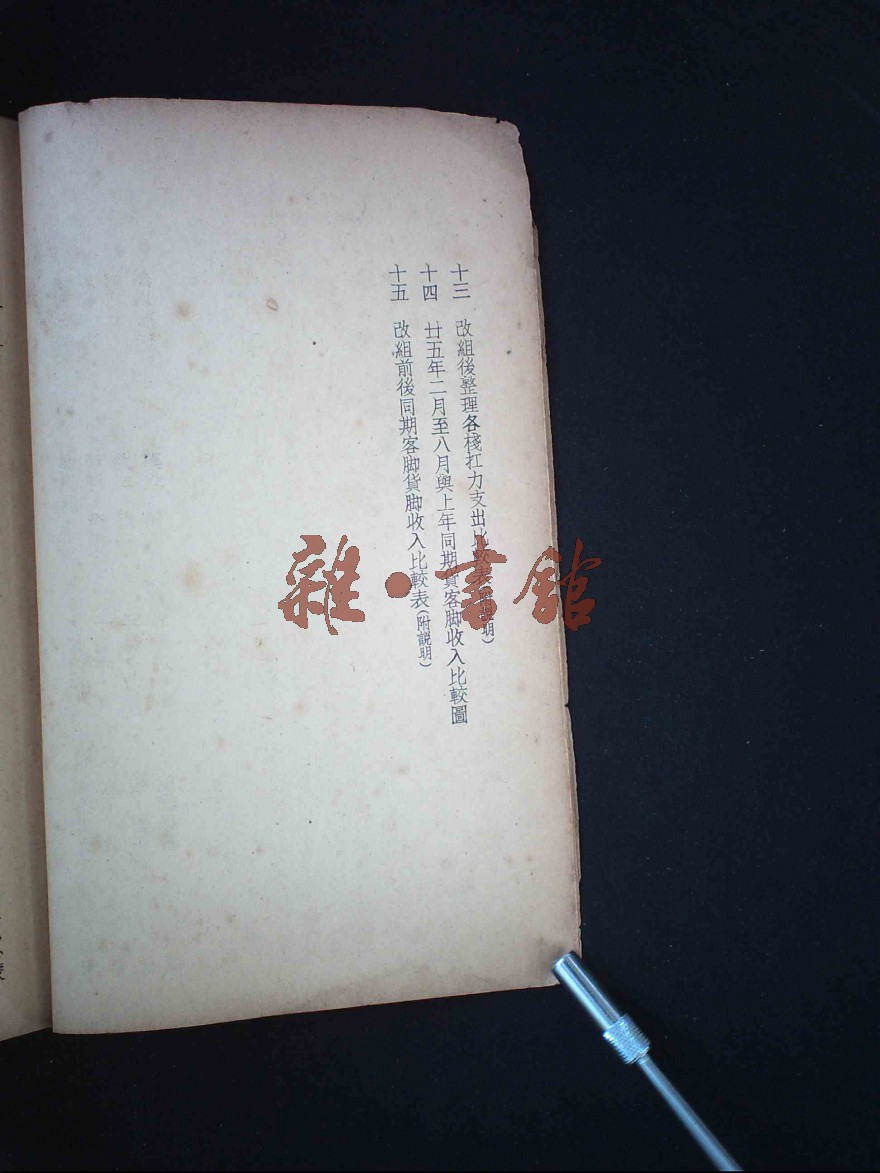 十三 改組後整理各棧扛力支出比較表(附說明)
十四 廿五年二月至八月與上年同期貨客脚收入比較圖
十五 改組前後同期客脚貨脚收入比較表(附說明)
雜·書館